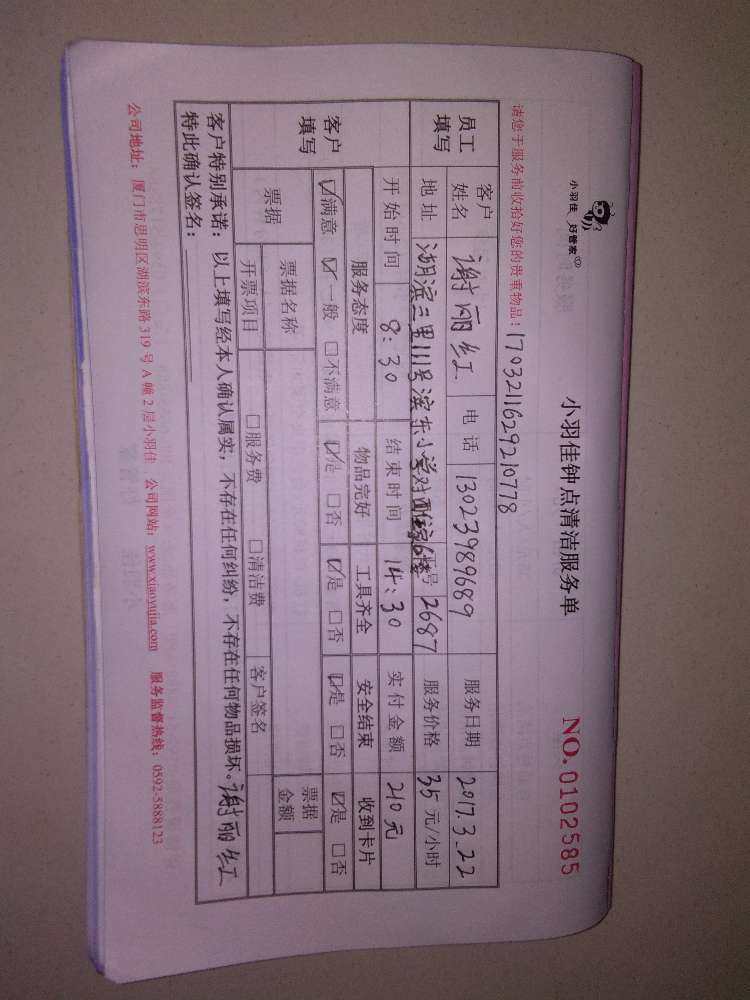 小羽佳 好管家
小羽佳钟点清洁服务单 NO. 0102585
请您于服务前收拾好您的贵重物品！17032116292107​78
员工填写 客户姓名 谢丽红 电话 13023989689 服务日期 2017.3.22
地址 湖滨三里111号滨东小学对面住家6楼 工号 2687 服务价格 35元/小时
开始时间 8:30 结束时间 14:30 实付金额 210元
客户填写 服务态度 物品完好 工具齐全 安全结束 收到卡片
☑满意 ☑一般 □不满意 ☑是 □否 ☑是 □否 ☑是 □否 ☑是 □否
票据 票据名称 票据金额
开票项目 □服务费 □清洁费 客户签名
客户特别承诺：以上填写经本人确认属实，不存在任何纠纷，不存在任何物品损坏。谢丽红
特此确认签名：
公司地址：厦门市思明区湖滨东路319号A幢2层小羽佳 公司网站：www.xiaoyujia.com 服务监督热线：0592-5888123